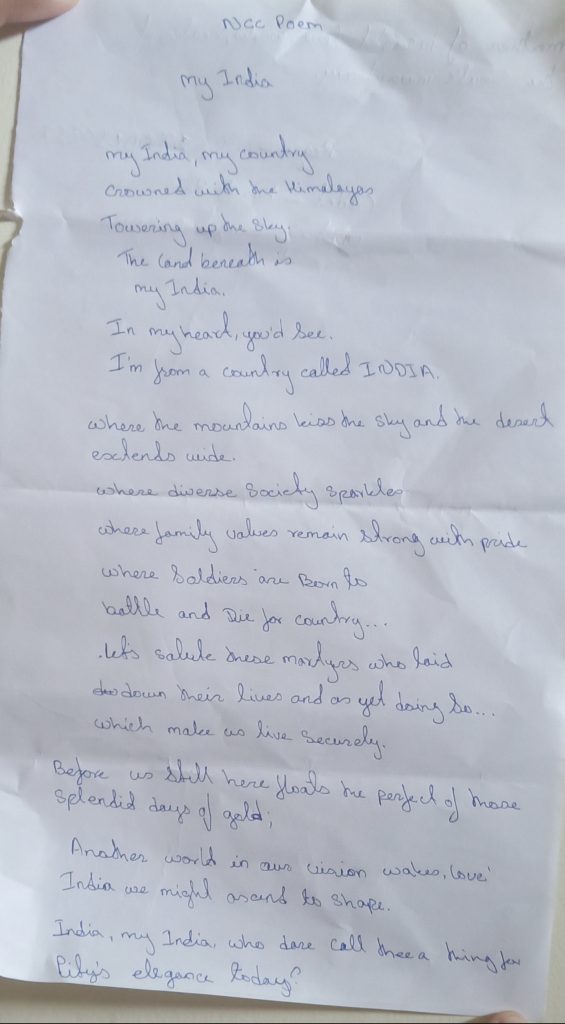 NCC Poem
My India
My India, my country
Crowned with the Himalayas
Towering up the sky.
The land beneath is
my India.
In my heart, you'd see.
I'm from a country called INDIA.
where the mountains kiss the sky and the desert
extends wide.
where diverse society sparkles
where family values remain strong with pride
where soldiers are Born to
battle and Die for country...
Let's salute these martyrs who laid
down their lives and as yet doing so...
which make us live securely.
Before us still here floats the perfect of those
splendid days of gold;
Another world in our vision wakes, love'
India we might ascend to shape.
India, my India, who dare call thee a thing for
Pity's elegance today?